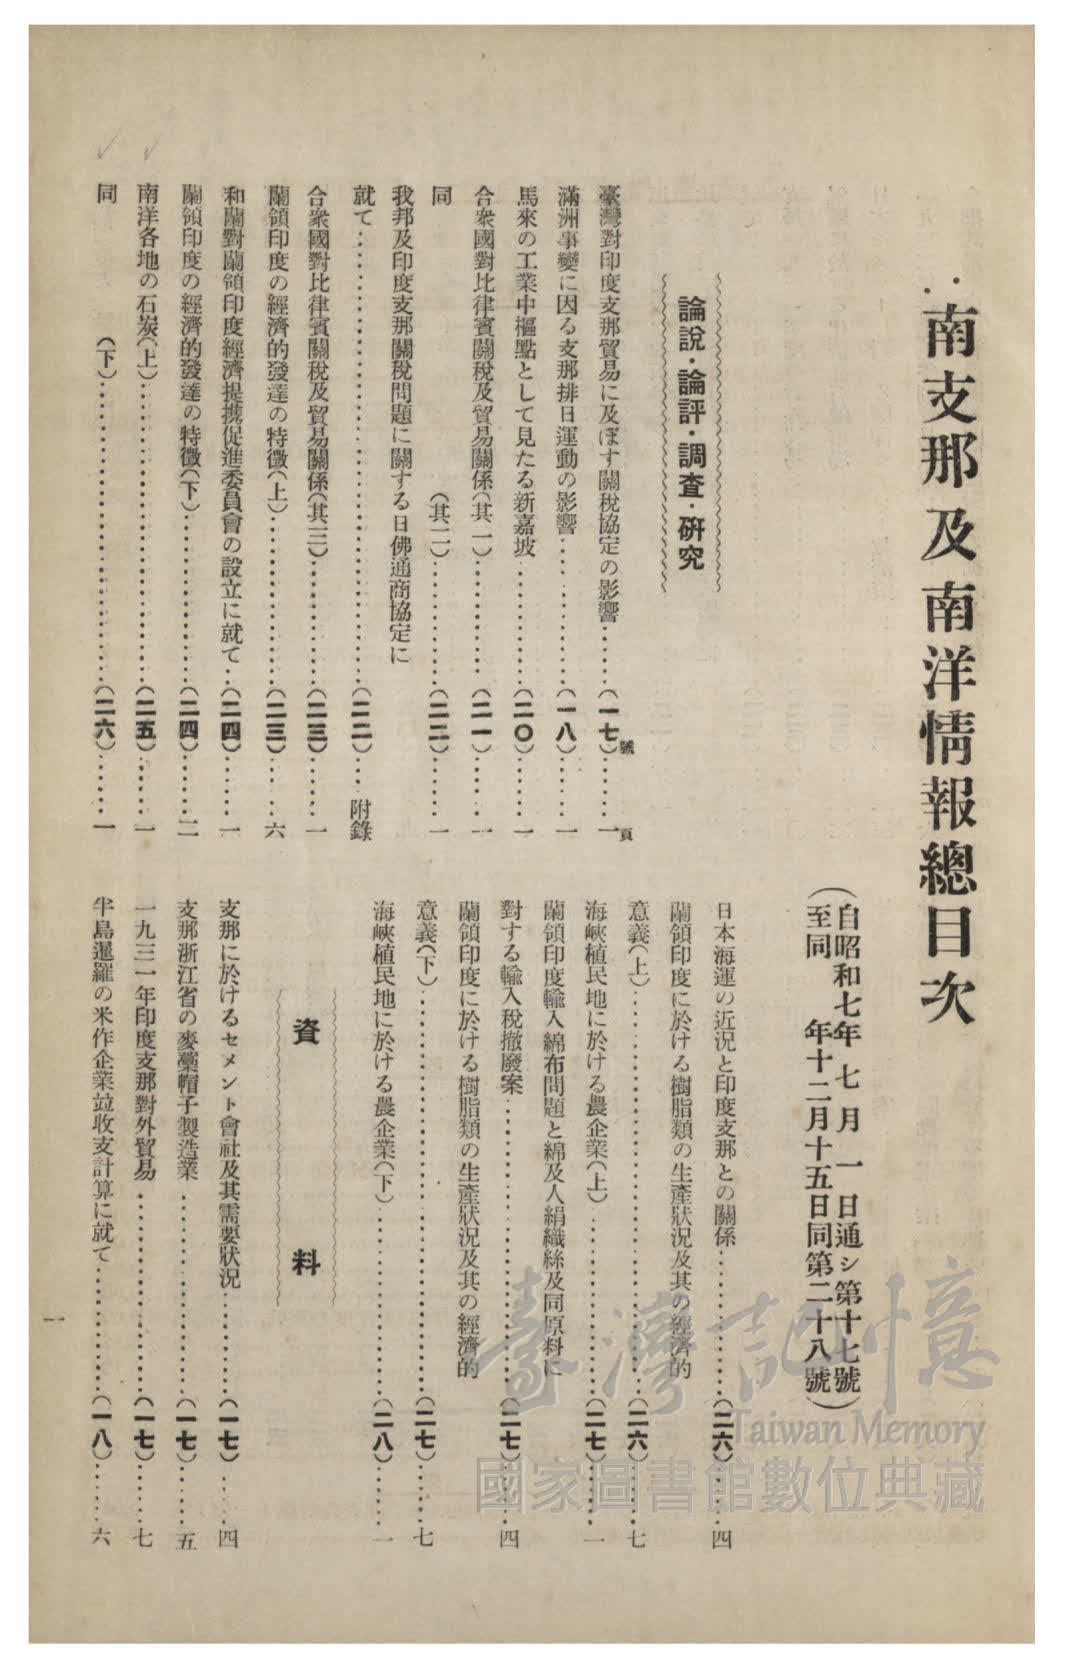 南支那及南洋情報總目次
(自昭和七年七月一日通シ第十七號
至同　年十二月十五日同第二十八號)
論說・論評・調査・硏究
臺灣對印度支那貿易に及ぼす關稅協定の影響……(一七號)……一頁
滿洲事變に因る支那排日運動の影響……(一八)……一
馬來の工業中樞點として見たる新嘉坡……(二〇)……一
合衆國對比律賓關稅及貿易關係(其一)……(二一)……一
同　(其二)……(二二)……一
我邦及印度支那關稅問題に關する日佛通商協定に
就て……(二二)……附錄
合衆國對比律賓關稅及貿易關係(其三)……(二三)……一
蘭領印度の經濟的發達の特徵(上)……(二三)……六
和蘭對蘭領印度經濟提携促進委員會の設立に就て……(二四)……一
蘭領印度の經濟的發達の特徵(下)……(二四)……二
南洋各地の石炭(上)……(二五)……一
同　(下)……(二六)……一
日本海運の近況と印度支那との關係……(二六)……四
蘭領印度に於ける樹脂類の生產狀況及其の經濟的
意義(上)……(二六)……七
海峽植民地に於ける農企業(上)……(二七)……一
蘭領印度輸入綿布問題と綿及人絹織絲及同原料に
對する輸入稅撤廢案……(二七)……四
蘭領印度に於ける樹脂類の生產狀況及其の經濟的
意義(下)……(二七)……七
海峽植民地に於ける農企業(下)……(二八)……一
資料
支那に於けるセメント會社及其需要狀況……(一七)……四
支那浙江省の麥藁帽子製造業……(一七)……五
一九三一年印度支那對外貿易……(一七)……七
半島暹羅の米作企業竝收支計算に就て……(一八)……六
一
臺灣記憶
Taiwan Memory
國家圖書館數位典藏